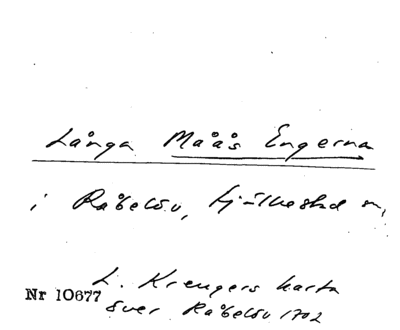 Långa Maås Engerna
i Råbelöv, Fjälkestad sn,
L. Kreugers karta
Nr 10677
över Råbelöv 1702